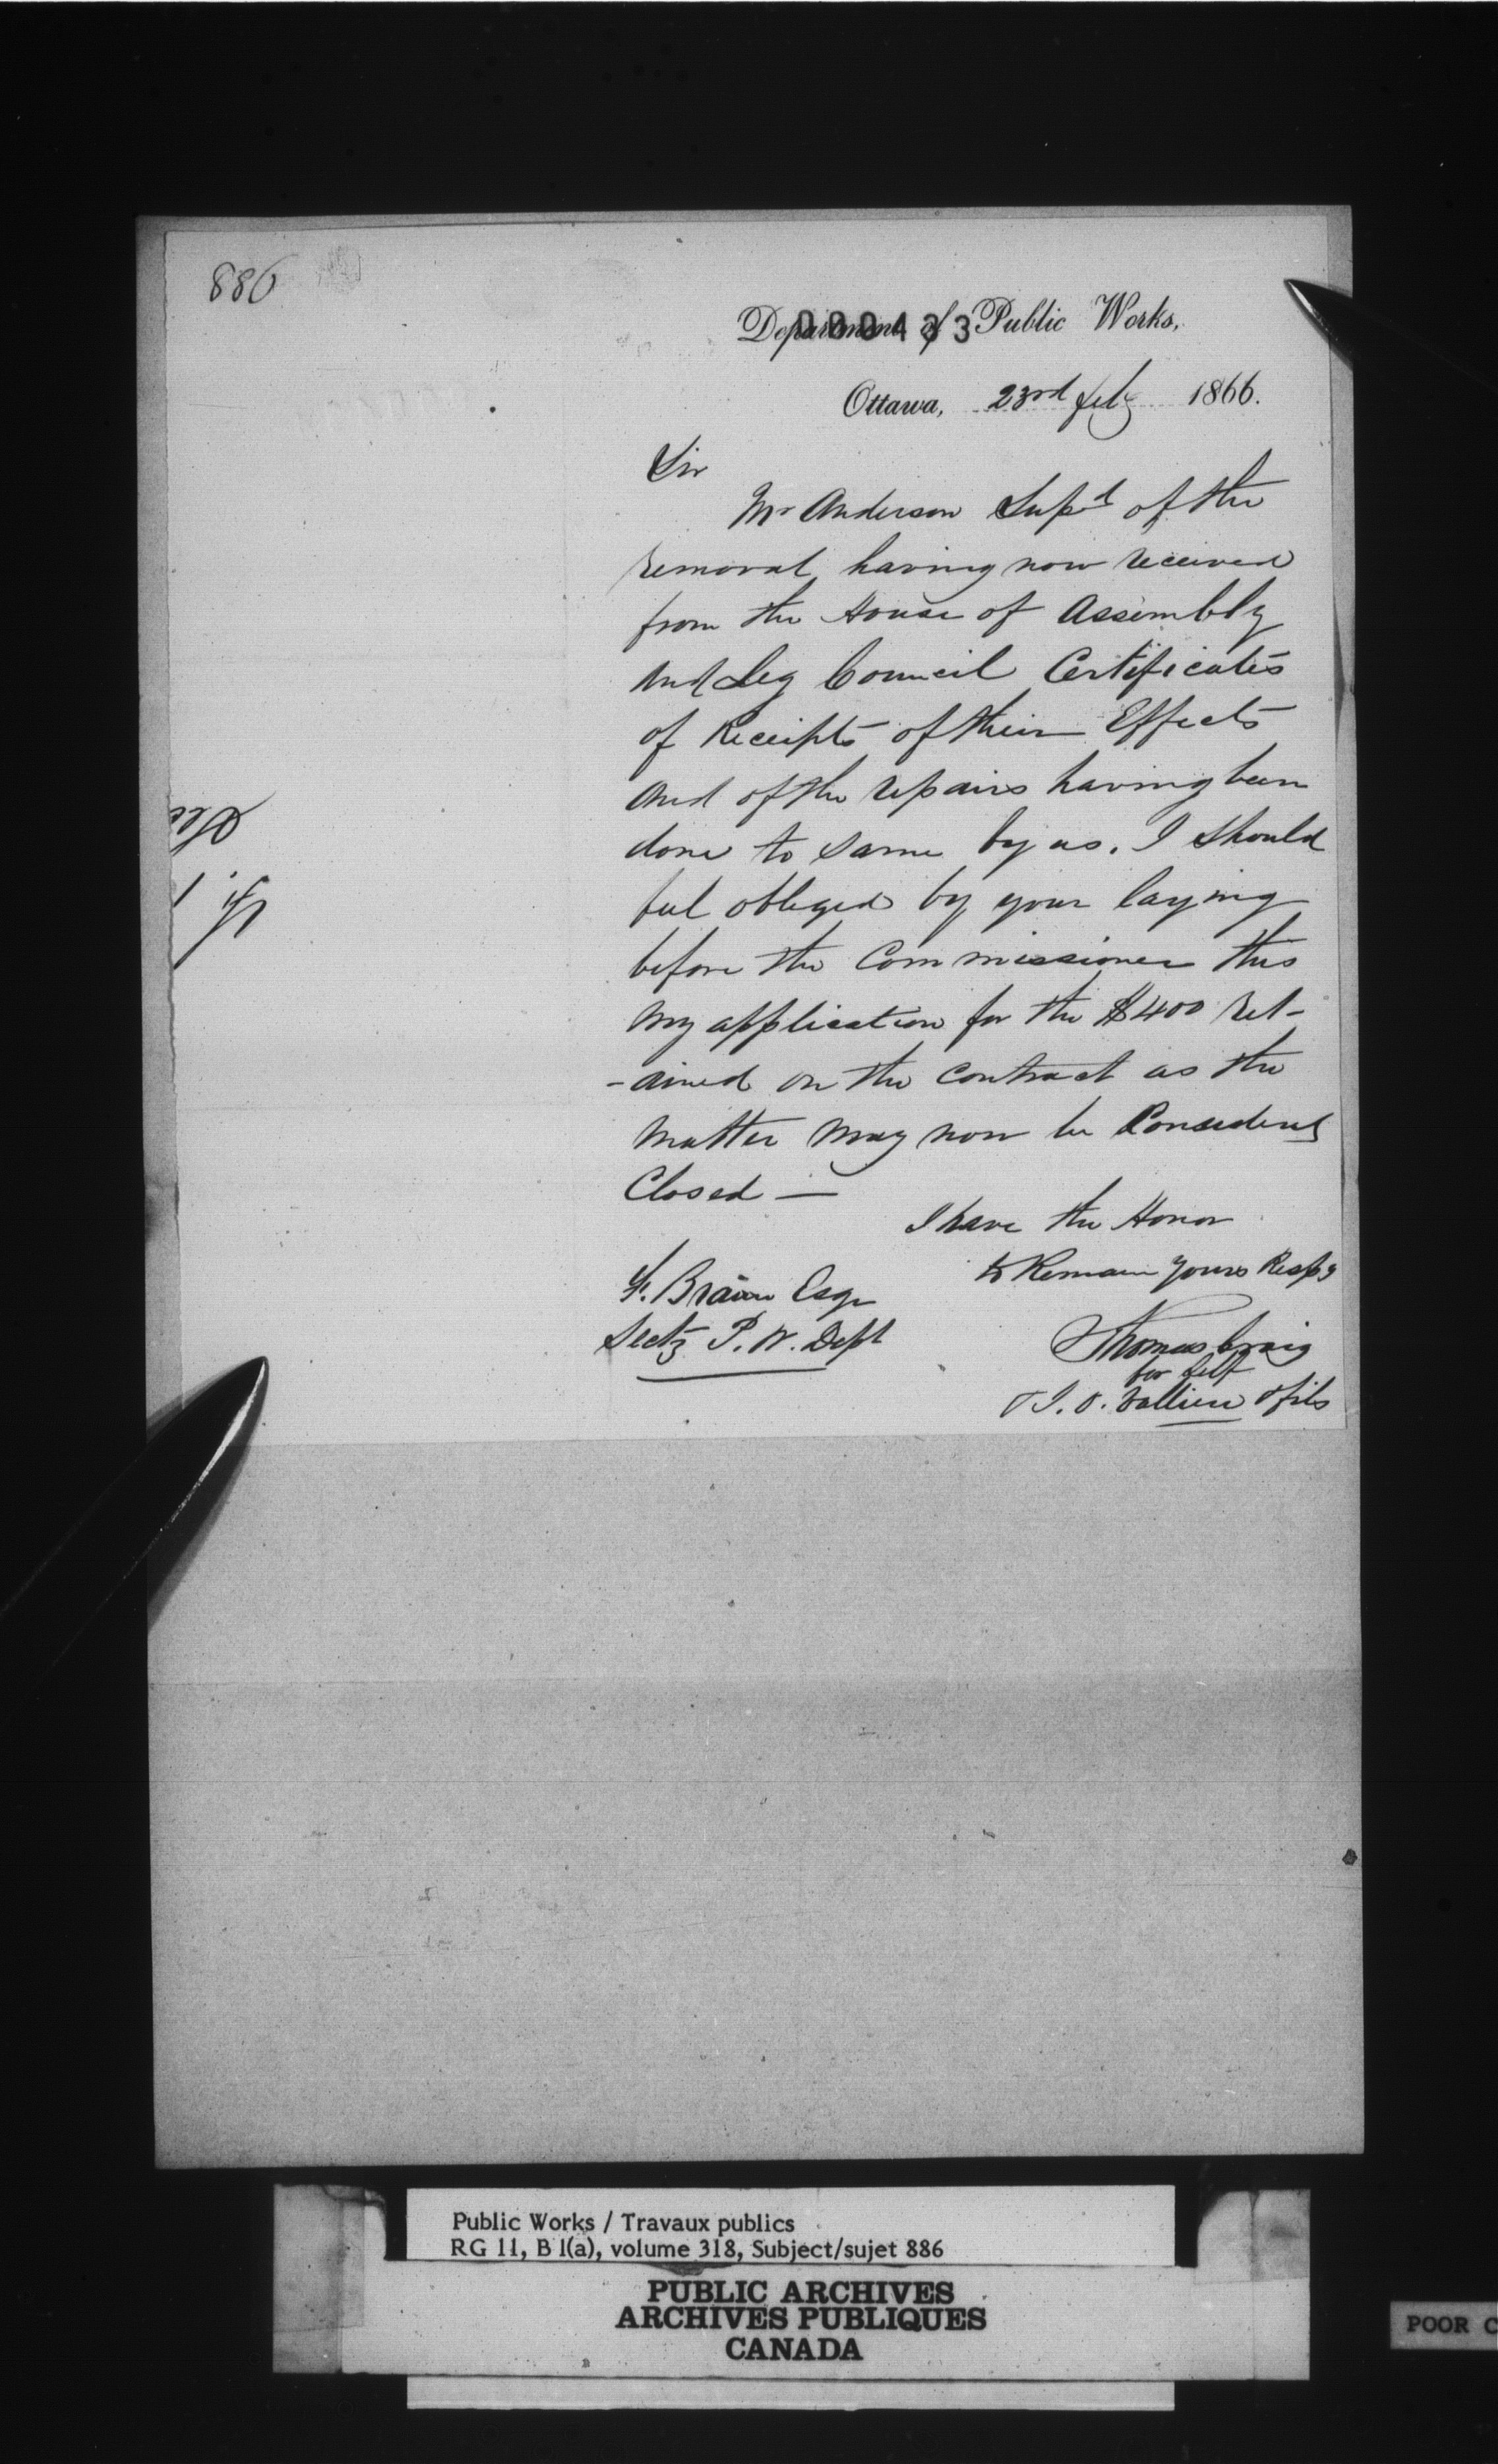 886
Department of Public Works,
000433
Ottawa, 23rd Feby 1866.
Sir
Mr Anderson Supd of the
removal having now received
from the House of Assembly
and Leg Council Certificates
of Receipts of their Effects
and of the repairs having been
done to same by us. I should
feel obliged by your laying
before the Commissioner this
my application for the $400 ret-
-ained on the contract as the
matter may now be Considered
Closed —
I have the Honor
to Remain Yours Respy
F. Braun Esqr
Secty P. W. Dept
Thomas Craig
for self
& J. O. Valliere & fils
Public Works / Travaux publics
RG 11, B 1(a), volume 318, Subject/sujet 886
PUBLIC ARCHIVES
ARCHIVES PUBLIQUES
CANADA
POOR C